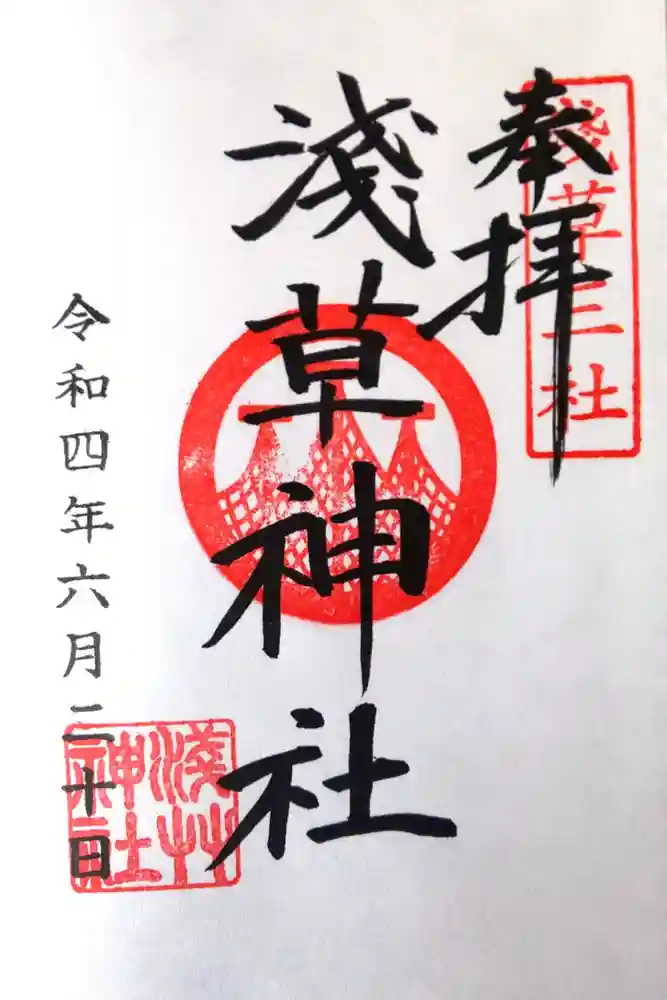 奉拝
淺草三社
淺草神社
令和四年六月二十日
淺草神社